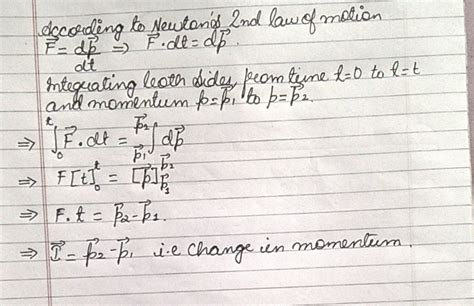 According to Newton's 2nd law of motion
F⃗ = dp⃗/dt ⇒ F⃗.dt = dp⃗.
Integrating both sides, from time t=0 to t=t
and momentum p=p⃗₁ to p=p⃗₂.
⇒ ∫₀ᵗ F⃗.dt = ∫_p⃗₁^p⃗₂ dp⃗
⇒ F[t]₀ᵗ = [p⃗]_p⃗₁^p⃗₂
⇒ F.t = p⃗₂-p⃗₁.
⇒ I⃗ = p⃗₂-p⃗₁ i.e change in momentum.